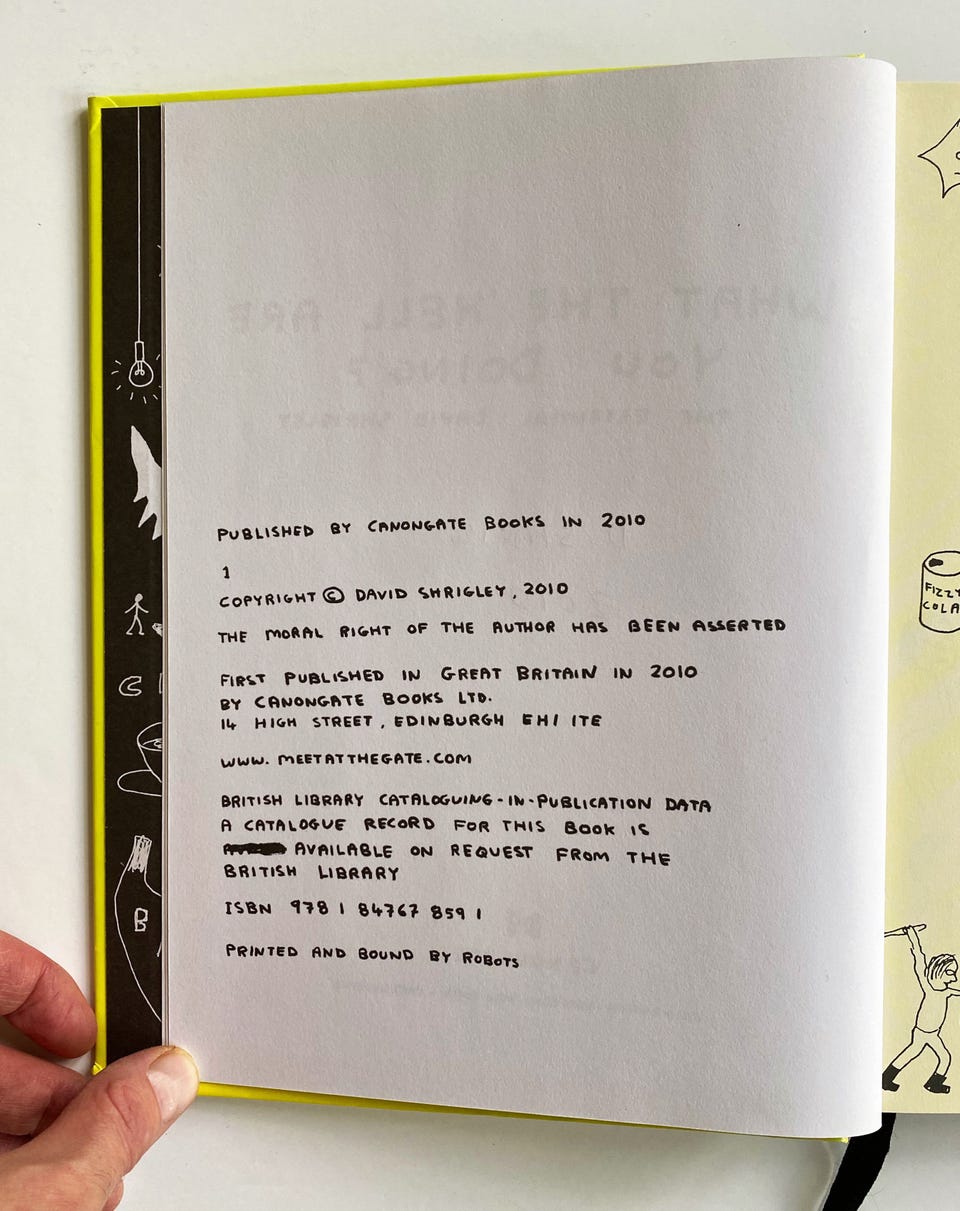 WHAT THE HELL ARE
YOU DOING?
THE ESSENTIAL DAVID SHRIGLEY
PUBLISHED BY CANONGATE BOOKS IN 2010
1
COPYRIGHT © DAVID SHRIGLEY, 2010
THE MORAL RIGHT OF THE AUTHOR HAS BEEN ASSERTED
FIRST PUBLISHED IN GREAT BRITAIN IN 2010
BY CANONGATE BOOKS LTD.
14 HIGH STREET, EDINBURGH EH1 1TE
WWW.MEETATTHEGATE.COM
BRITISH LIBRARY CATALOGUING-IN-PUBLICATION DATA
A CATALOGUE RECORD FOR THIS BOOK IS
AVAILABLE ON REQUEST FROM THE
BRITISH LIBRARY
ISBN 978 1 84767 859 1
PRINTED AND BOUND BY ROBOTS
B
FIZZY
COLA